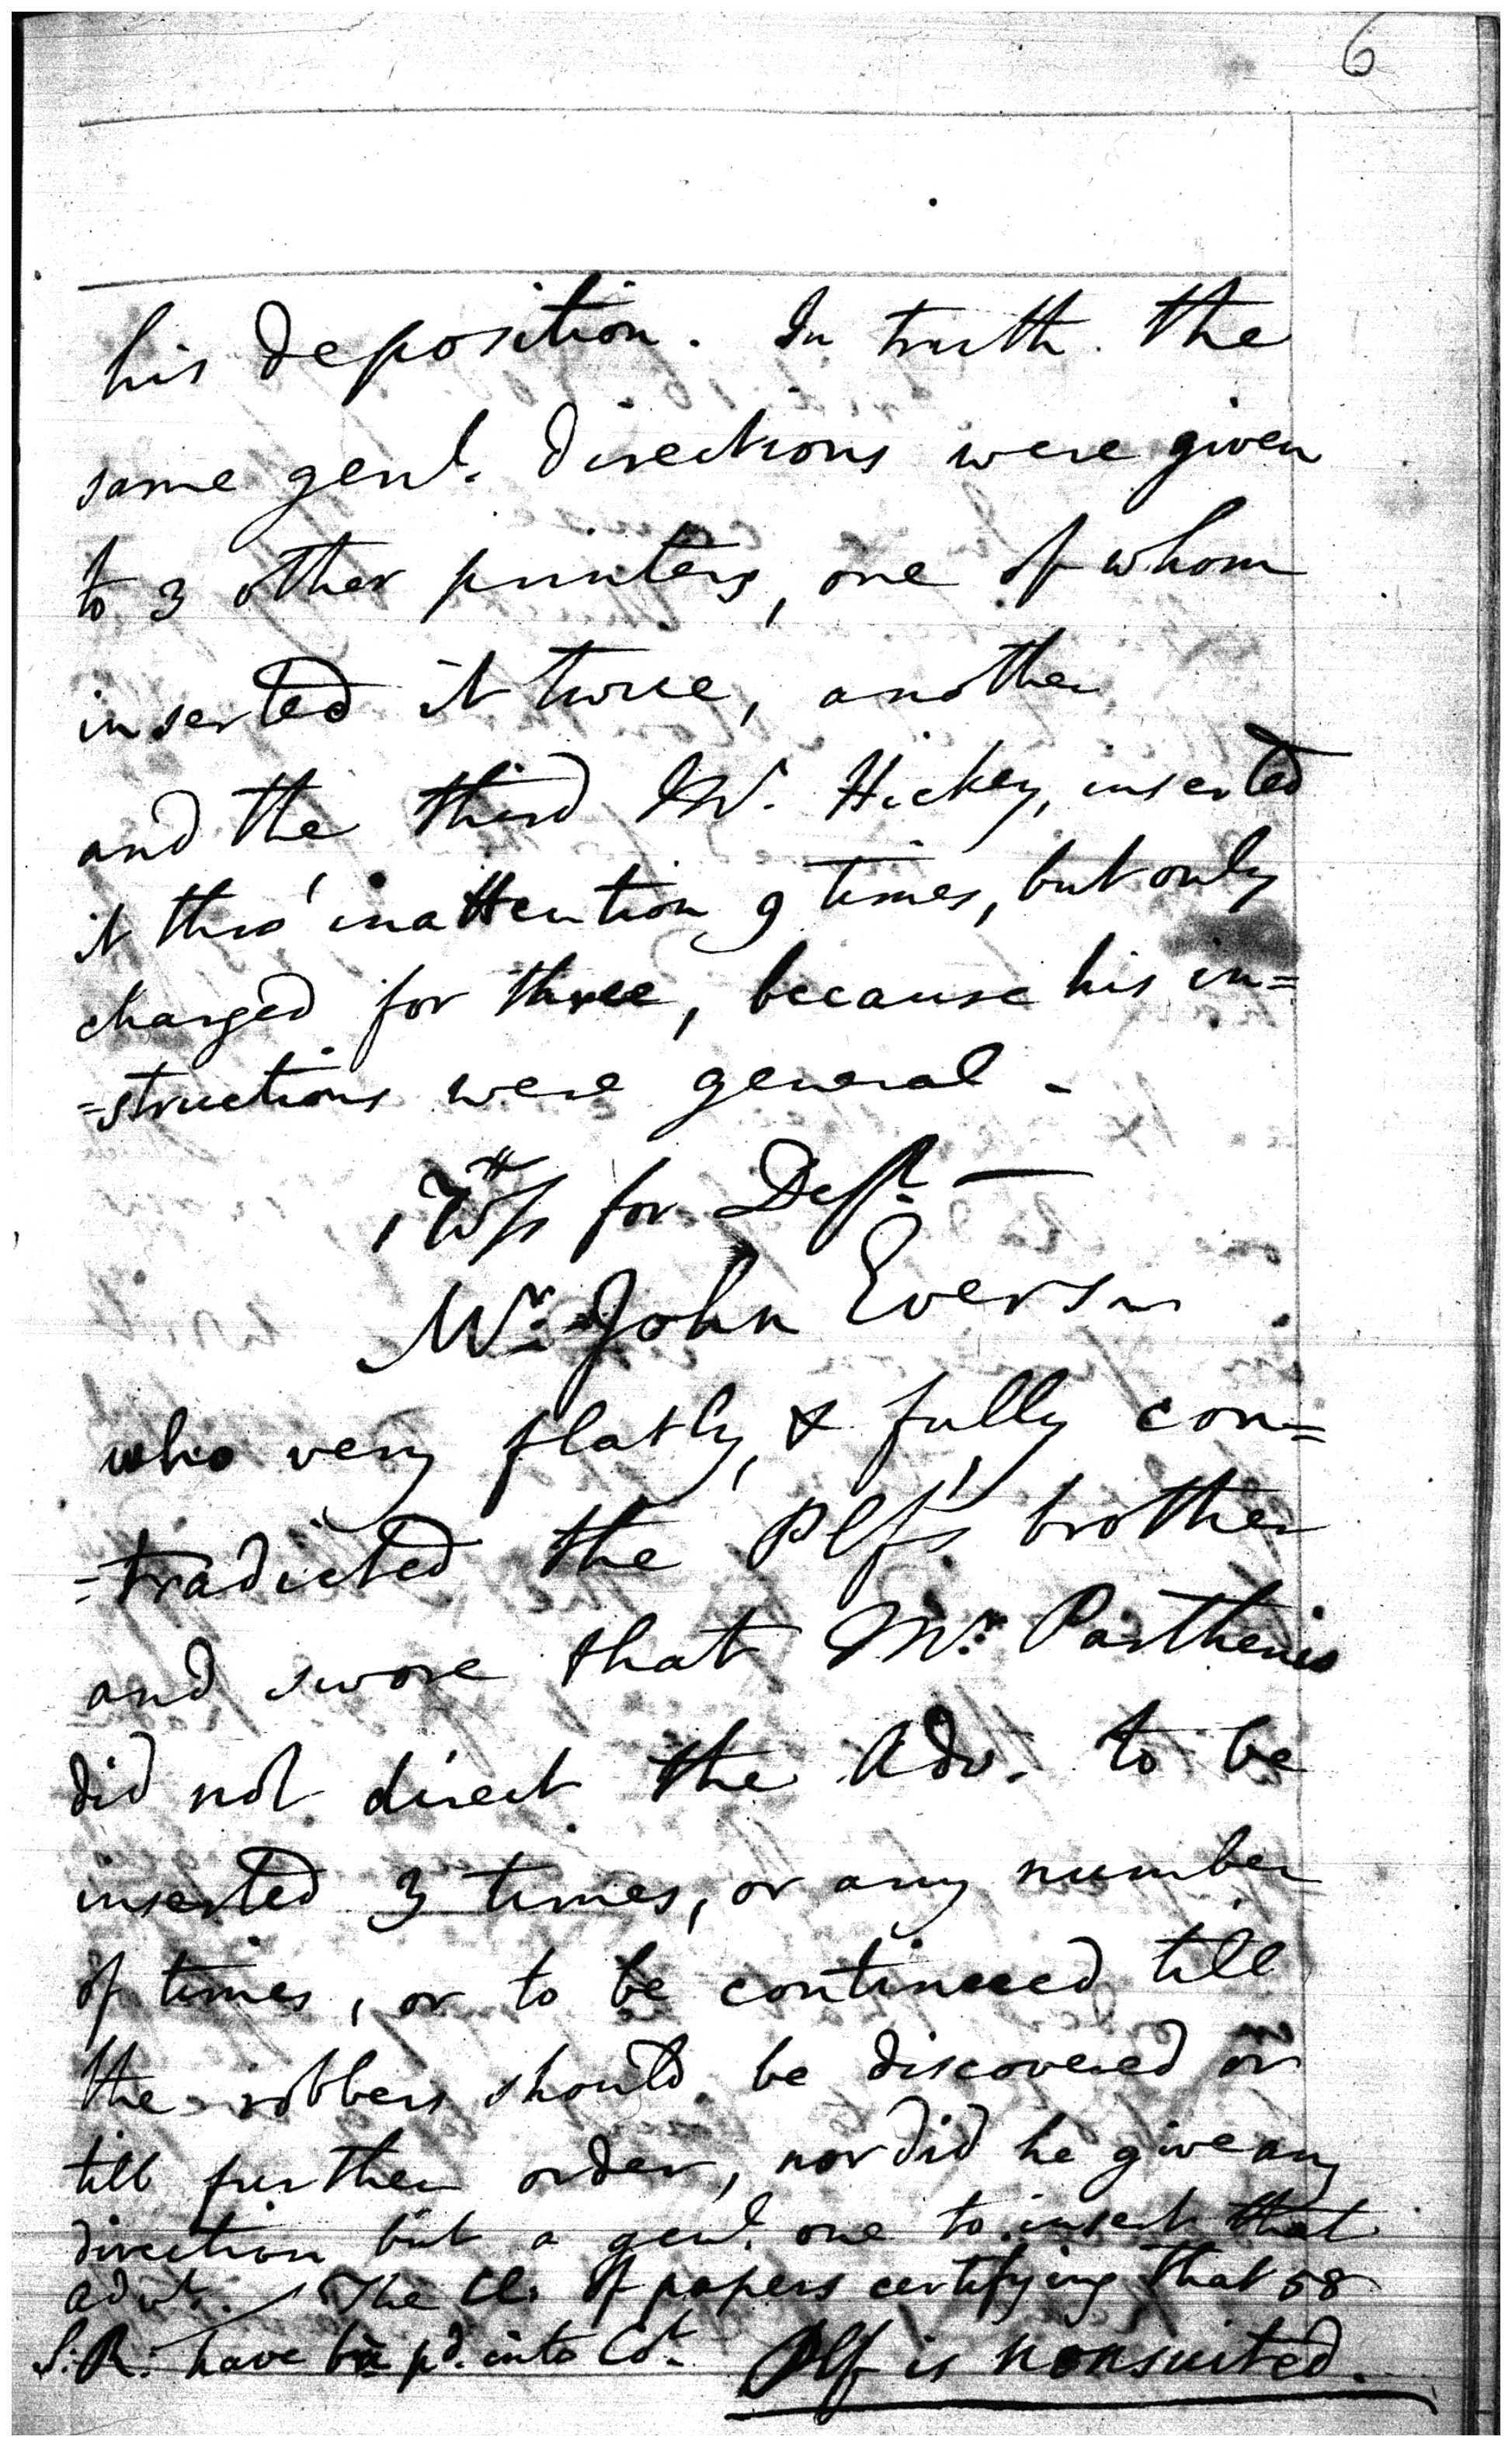 6
his deposition. In truth the
same genl. directions were given
to 3 other printers, one of whom
inserted it twice, another
and the third Mr. Hickey, inserted
it thro' inattention 9 times, but only
charged for three, because his in=
=structions were general -
for Deft. —
Mr. John Everson
who very flatly, & fully con=
=tradicted the Plf's brother
and swore that Mr. Parthenio
did not direct the Adv. to be
inserted 3 times, or any number
of times, or to be continued till
the robbers should be discovered or
till further order, nor did he give any
direction but a genl. one to insert that
advt. The Cl. of papers certifying that 58
S.R: have been pd. into Ct. Plf is nonsuited.